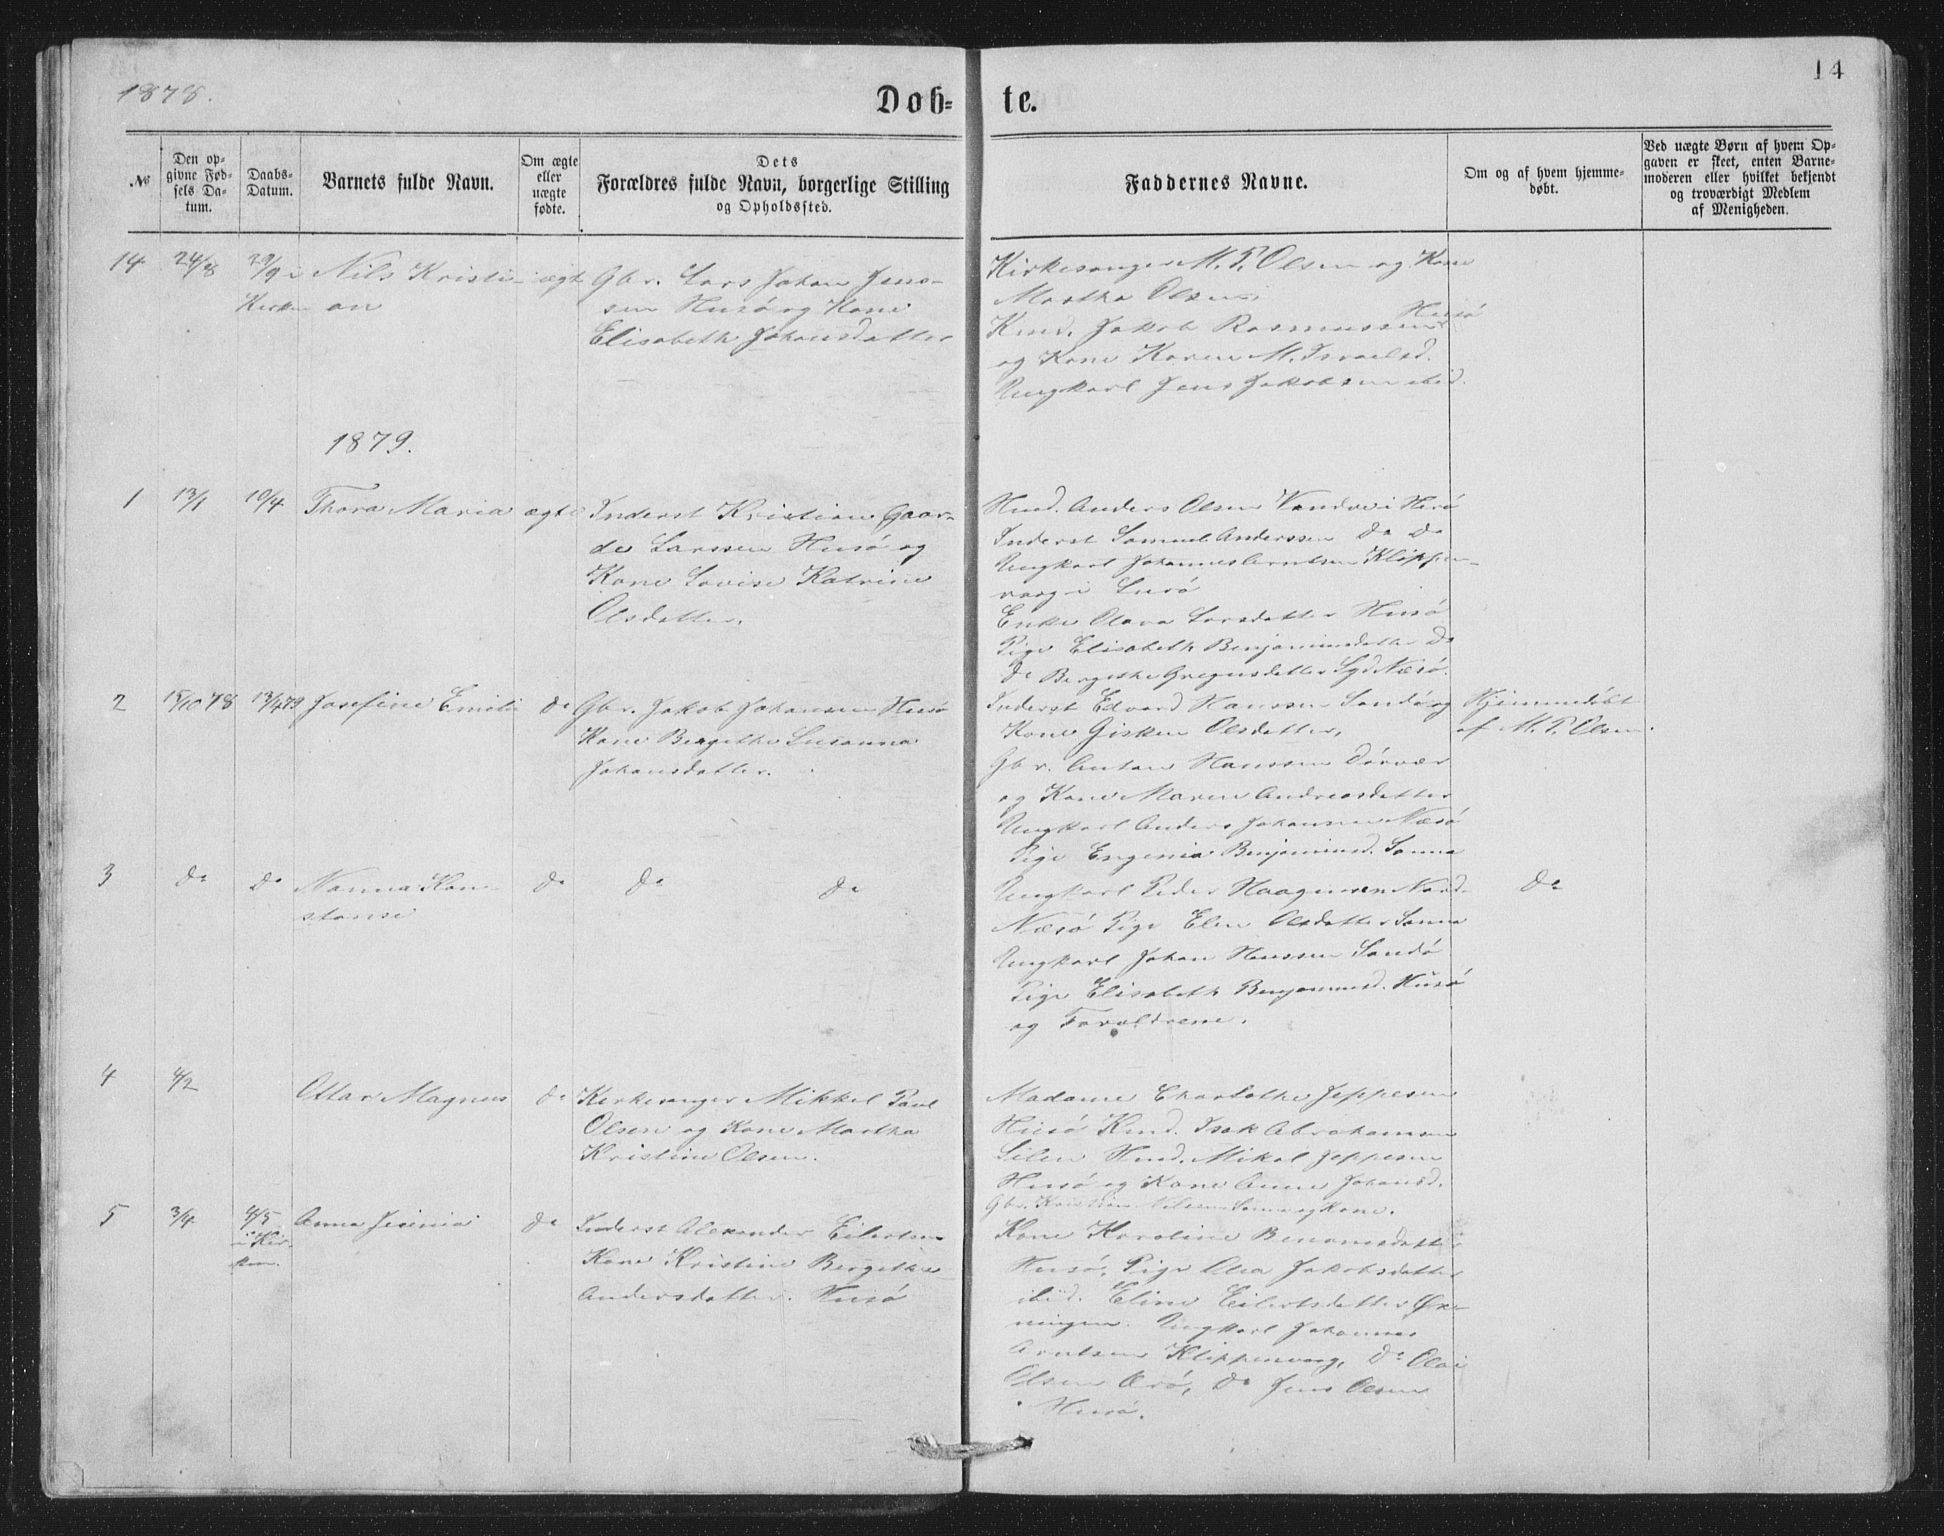 1878.
Døb-
te.
14
№
Den op-
givne Fød-
sels Da-
tum.
Daabs-
Datum.
Barnets fulde Navn.
Om ægte
eller
uægte
fødte.
Dets
Forældres fulde Navn, borgerlige Stilling
og Opholdssted.
Faddernes Navne.
Om og af hvem hjemme-
døbt.
Ved uægte Børn af hvem Op-
gaven er skeet, enten Barne-
moderen eller hvilket bekjendt
og troværdigt Medlem
af Menigheden.
14
24/8
29/9 i
Kirken
Nils Kristi-
an
ægte
Gbr. Lars Johan Jens-
sen Husø og Kone
Elisabeth Johansdatter
Kirkesanger M. P. Olsen og Kone
Martha Olsen,
Kmd. Jakob Rasmussen Husø
og Kone Karen M. Israelsd.
Ungkarl Jens Jakobsen ibid.
1879.
1
13/1
10/4
Thora Maria
ægte
Inderst Kristian Gaar-
der Larssen Husø og
Kone Lovise Katrine
Olsdatter.
Hmd. Anders Olsen Vandve i Herø
Inderst Samuel Anderssen Do Do
Ungkarl Johannes Arntsen Klippen-
vaag i Lurø
Enke Olava Larsdatter Husø
Pige Elisabeth Benjaminsdatter Do
Do Bergithe Gregusdatter Syd Næsø.
2
15/10 78
13/4 79
Josefine Emilie
Do
Gbr. Jakob Johansen Husø
Kone Bergithe Susanna
Johansdatter.
Inderst Edvard Hanssen Sandø og
Kone Gisken Olsdatter,
Gbr. Anton Hanssen Dørvær
og Kone Maren Andreasdatter
Ungkarl Anders Johansen Næsø
Pige Eugenia Benjaminsd. Sanna
Hjemmedøbt
af M. P. Olsen.
3
Do
Do
Nanna Kon-
stanse
Do
Do
Do
Ungkarl Peder Haagensen Nord-
Næsø Pige Elen Olsdatter Sanna
Ungkarl Johan Hanssen Sandø
Pige Elisabeth Benjaminsd. Husø
og Forældrene.
Do
4
4/2
Ottar Magnus
Do
Kirkesanger Mikkel Paul
Olsen og Kone Martha
Kristine Olsen.
Madame Charlothe Jeppesen
Husø Kmd. Isak Abrahamsen
Selen Hmd. Mikal Jeppesen
Husø og Kone Anne Johansd.
Gbr. Kristian Nilsen Sanna og Kone.
5
3/4
4/5
i Kir-
ken.
Anna Jesinia
Do
Inderst Alexander Eilertsen
Kone Kristine Bergithe
Andersdatter. Husø
Kone Karoline Benonisdatter
Husø, Pige Olea Jakobsdatter
ibid. Eline Eilertsdatter Øx-
ningen. Ungkarl Johannes
Arntsen Klippenvaag, Do Olai
Olsen Ærø, Do Jens Olsen
Husø.